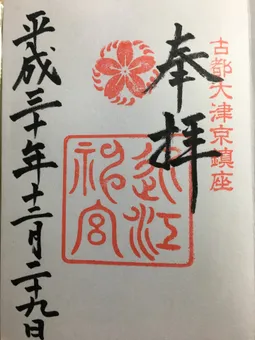 古都大津京鎮座
奉拝
近江神宮
平成三十年十二月二十九日